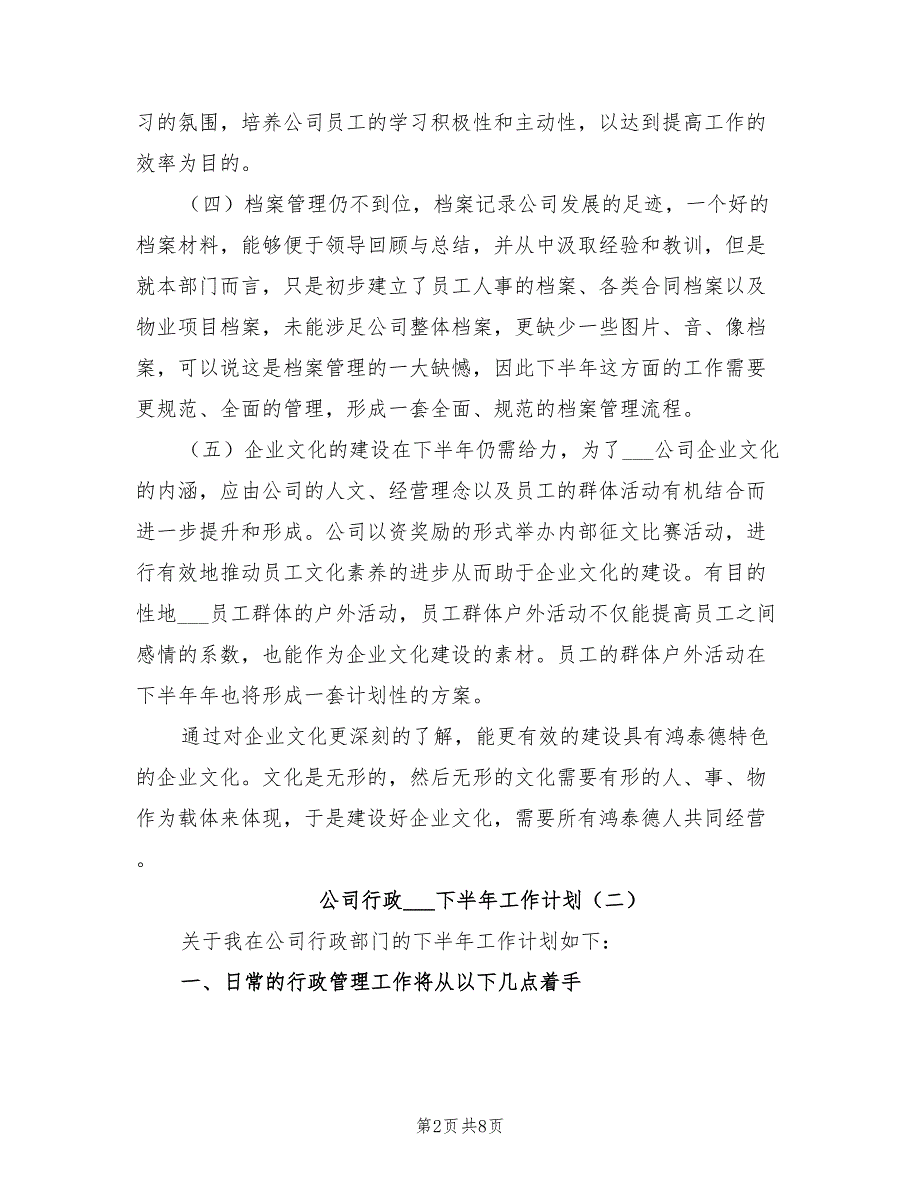 习的氛围，培养公司员工的学习积极性和主动性，以达到提高工作的
效率为目的。
（四）档案管理仍不到位，档案记录公司发展的足迹，一个好的
档案材料，能够便于领导回顾与总结，并从中汲取经验和教训，但是
就本部门而言，只是初步建立了员工人事的档案、各类合同档案以及
物业项目档案，未能涉足公司整体档案，更缺少一些图片、音、像档
案，可以说这是档案管理的一大缺憾，因此下半年这方面的工作需要
更规范、全面的管理，形成一套全面、规范的档案管理流程。
（五）企业文化的建设在下半年仍需给力，为了___公司企业文化
的内涵，应由公司的人文、经营理念以及员工的群体活动有机结合而
进一步提升和形成。公司以资奖励的形式举办内部征文比赛活动，进
行有效地推动员工文化素养的进步从而助于企业文化的建设。有目的
性地___员工群体的户外活动，员工群体户外活动不仅能提高员工之间
感情的系数，也能作为企业文化建设的素材。员工的群体户外活动在
下半年年也将形成一套计划性的方案。
通过对企业文化更深刻的了解，能更有效的建设具有鸿泰德特色
的企业文化。文化是无形的，然后无形的文化需要有形的人、事、物
作为载体来体现，于是建设好企业文化，需要所有鸿泰德人共同经营
。
公司行政___下半年工作计划（二）
关于我在公司行政部门的下半年工作计划如下：
一、日常的行政管理工作将从以下几点着手
第2页 共8页